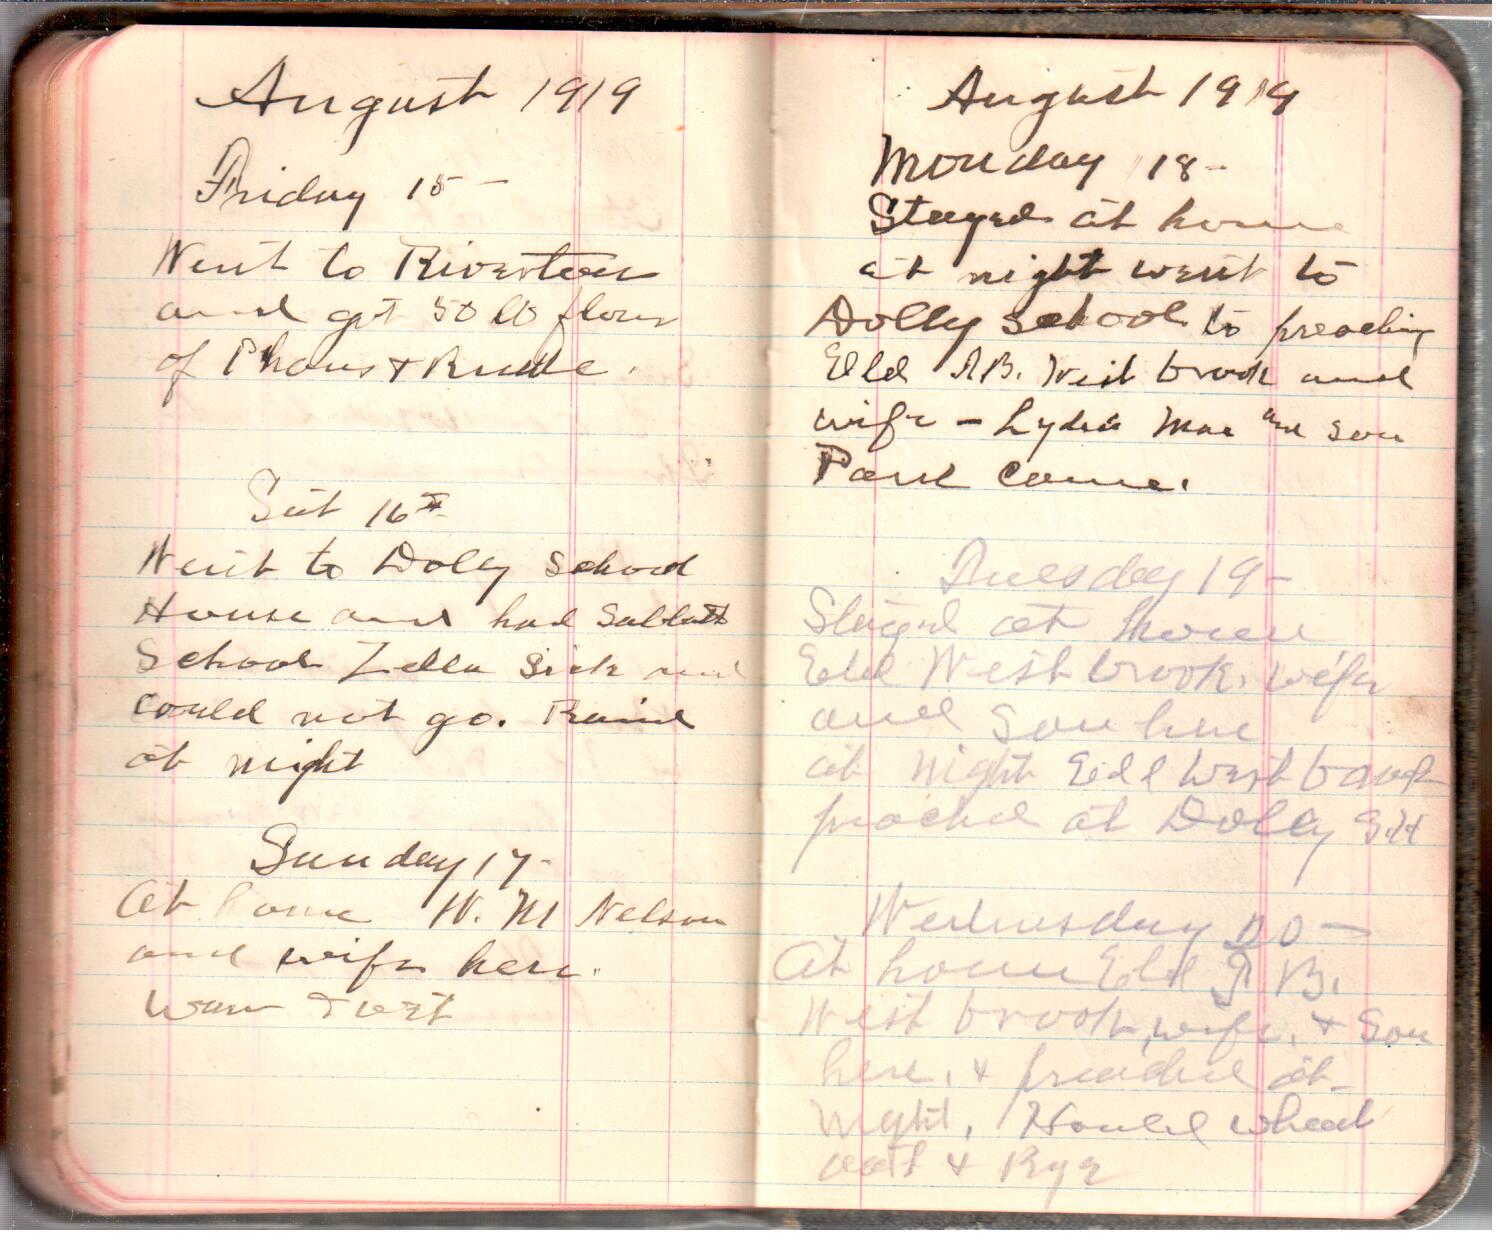 August 1919
Friday 15 -
Went to Riverton
and got 50 lb flour
of &
Sat 16th
Went to Dolly School
House and had Sabbath
School Zella Sick and
could not go. Raind
at night
Sunday 17 -
At home W. M Nelson
and wife here.
warm & wet
August 1919
Monday 18 -
Stayed at home
at night went to
Dolly School to preaching
Eld B. West brook and
wife - Lydia Mae and son
Paul came.
Tuesday 19 -
Stayed at home
Eld West brook, wife
and Son here
at night Eld West brook
preached at Dolly S H
Wednesday 20 -
At home Eld B.
West brook, wife, & Son
here, & preached at
night. Hauled wheat
oats & Rye